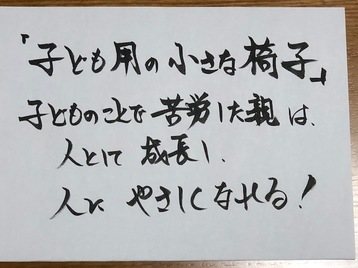 「子ども用の小さな椅子」
子どものことで苦労した親は、
人として成長し、
人にやさしくなれる！